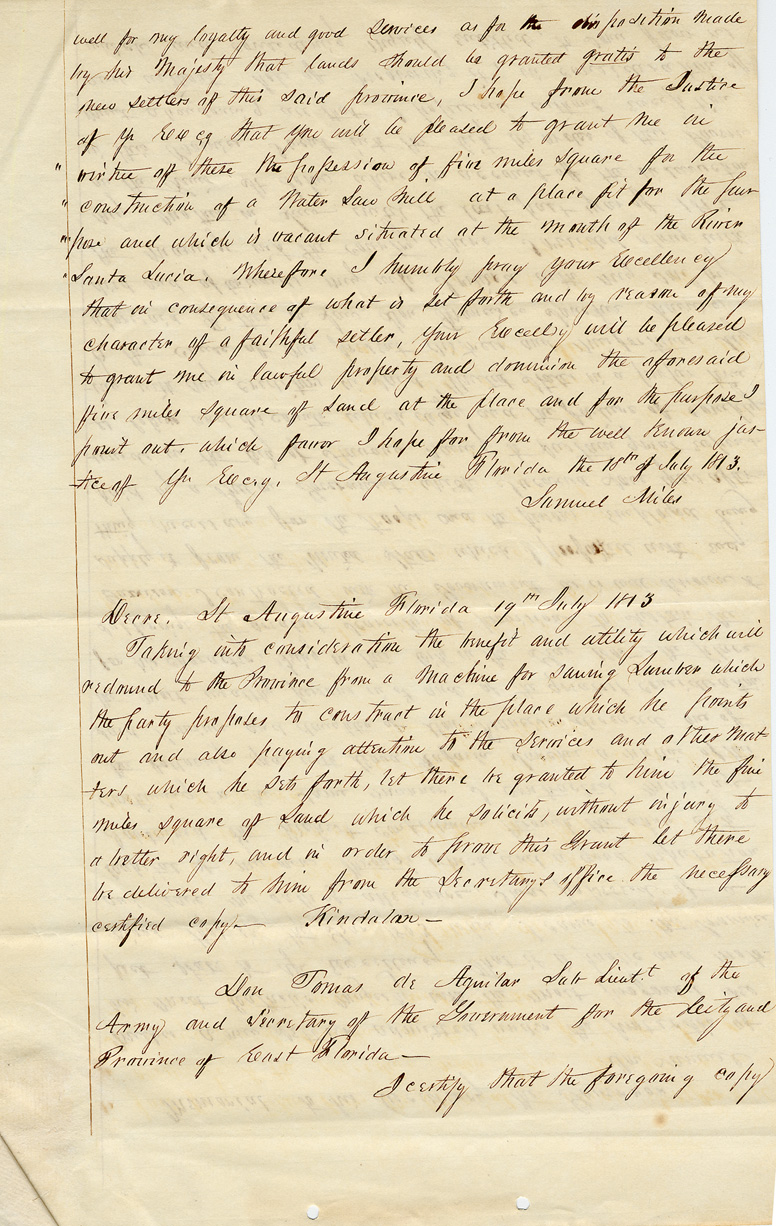 well for my loyalty and good services as for the disposition made
by his Majesty that lands should be granted gratis to the
new settlers of this said province, I hope from the Justice
of Yr Excy that you will be pleased to grant me in
" virtue off these the possession of five miles square for the
" construction of a Water Saw Mill at a place fit for the pur
"" pose and which is vacant situated at the Mouth of the River
" Santa Lucia. Wherefore I humbly pray your Excellency
that in consequence of what is set forth and by reason of my
character of a faithful settler, Your Excelly will be pleased
to grant me in lawful property and dominion the afforesaid
five miles square of Land at the place and for the purpose I
point out, which favor I hope for from the well known jus-
tice of Yr Excy. St Augustine Florida the 18th of July 1813.
Samuel Miles
Decre. St Augustine Florida 19th July 1813
Taking into consideration the benefit and utility which will
redound to the Province from a Machine for sawing Lumber which
the party proposes to construct in the place which he points
out and also paying attention to the services and other Mat-
ters which he sets forth, let there be granted to him the five
miles square of Land which he solicits, without injury to
a better right, and in order to prove this Grant let there
be delivered to him from the Secretarys office the necessary
certified copy— Kindalan—
Don Tomas de Aguilar Sub Lieut.t of the
Army and Secretary of the Government for the City and
Province of East Florida—
I certify that the foregoing copy